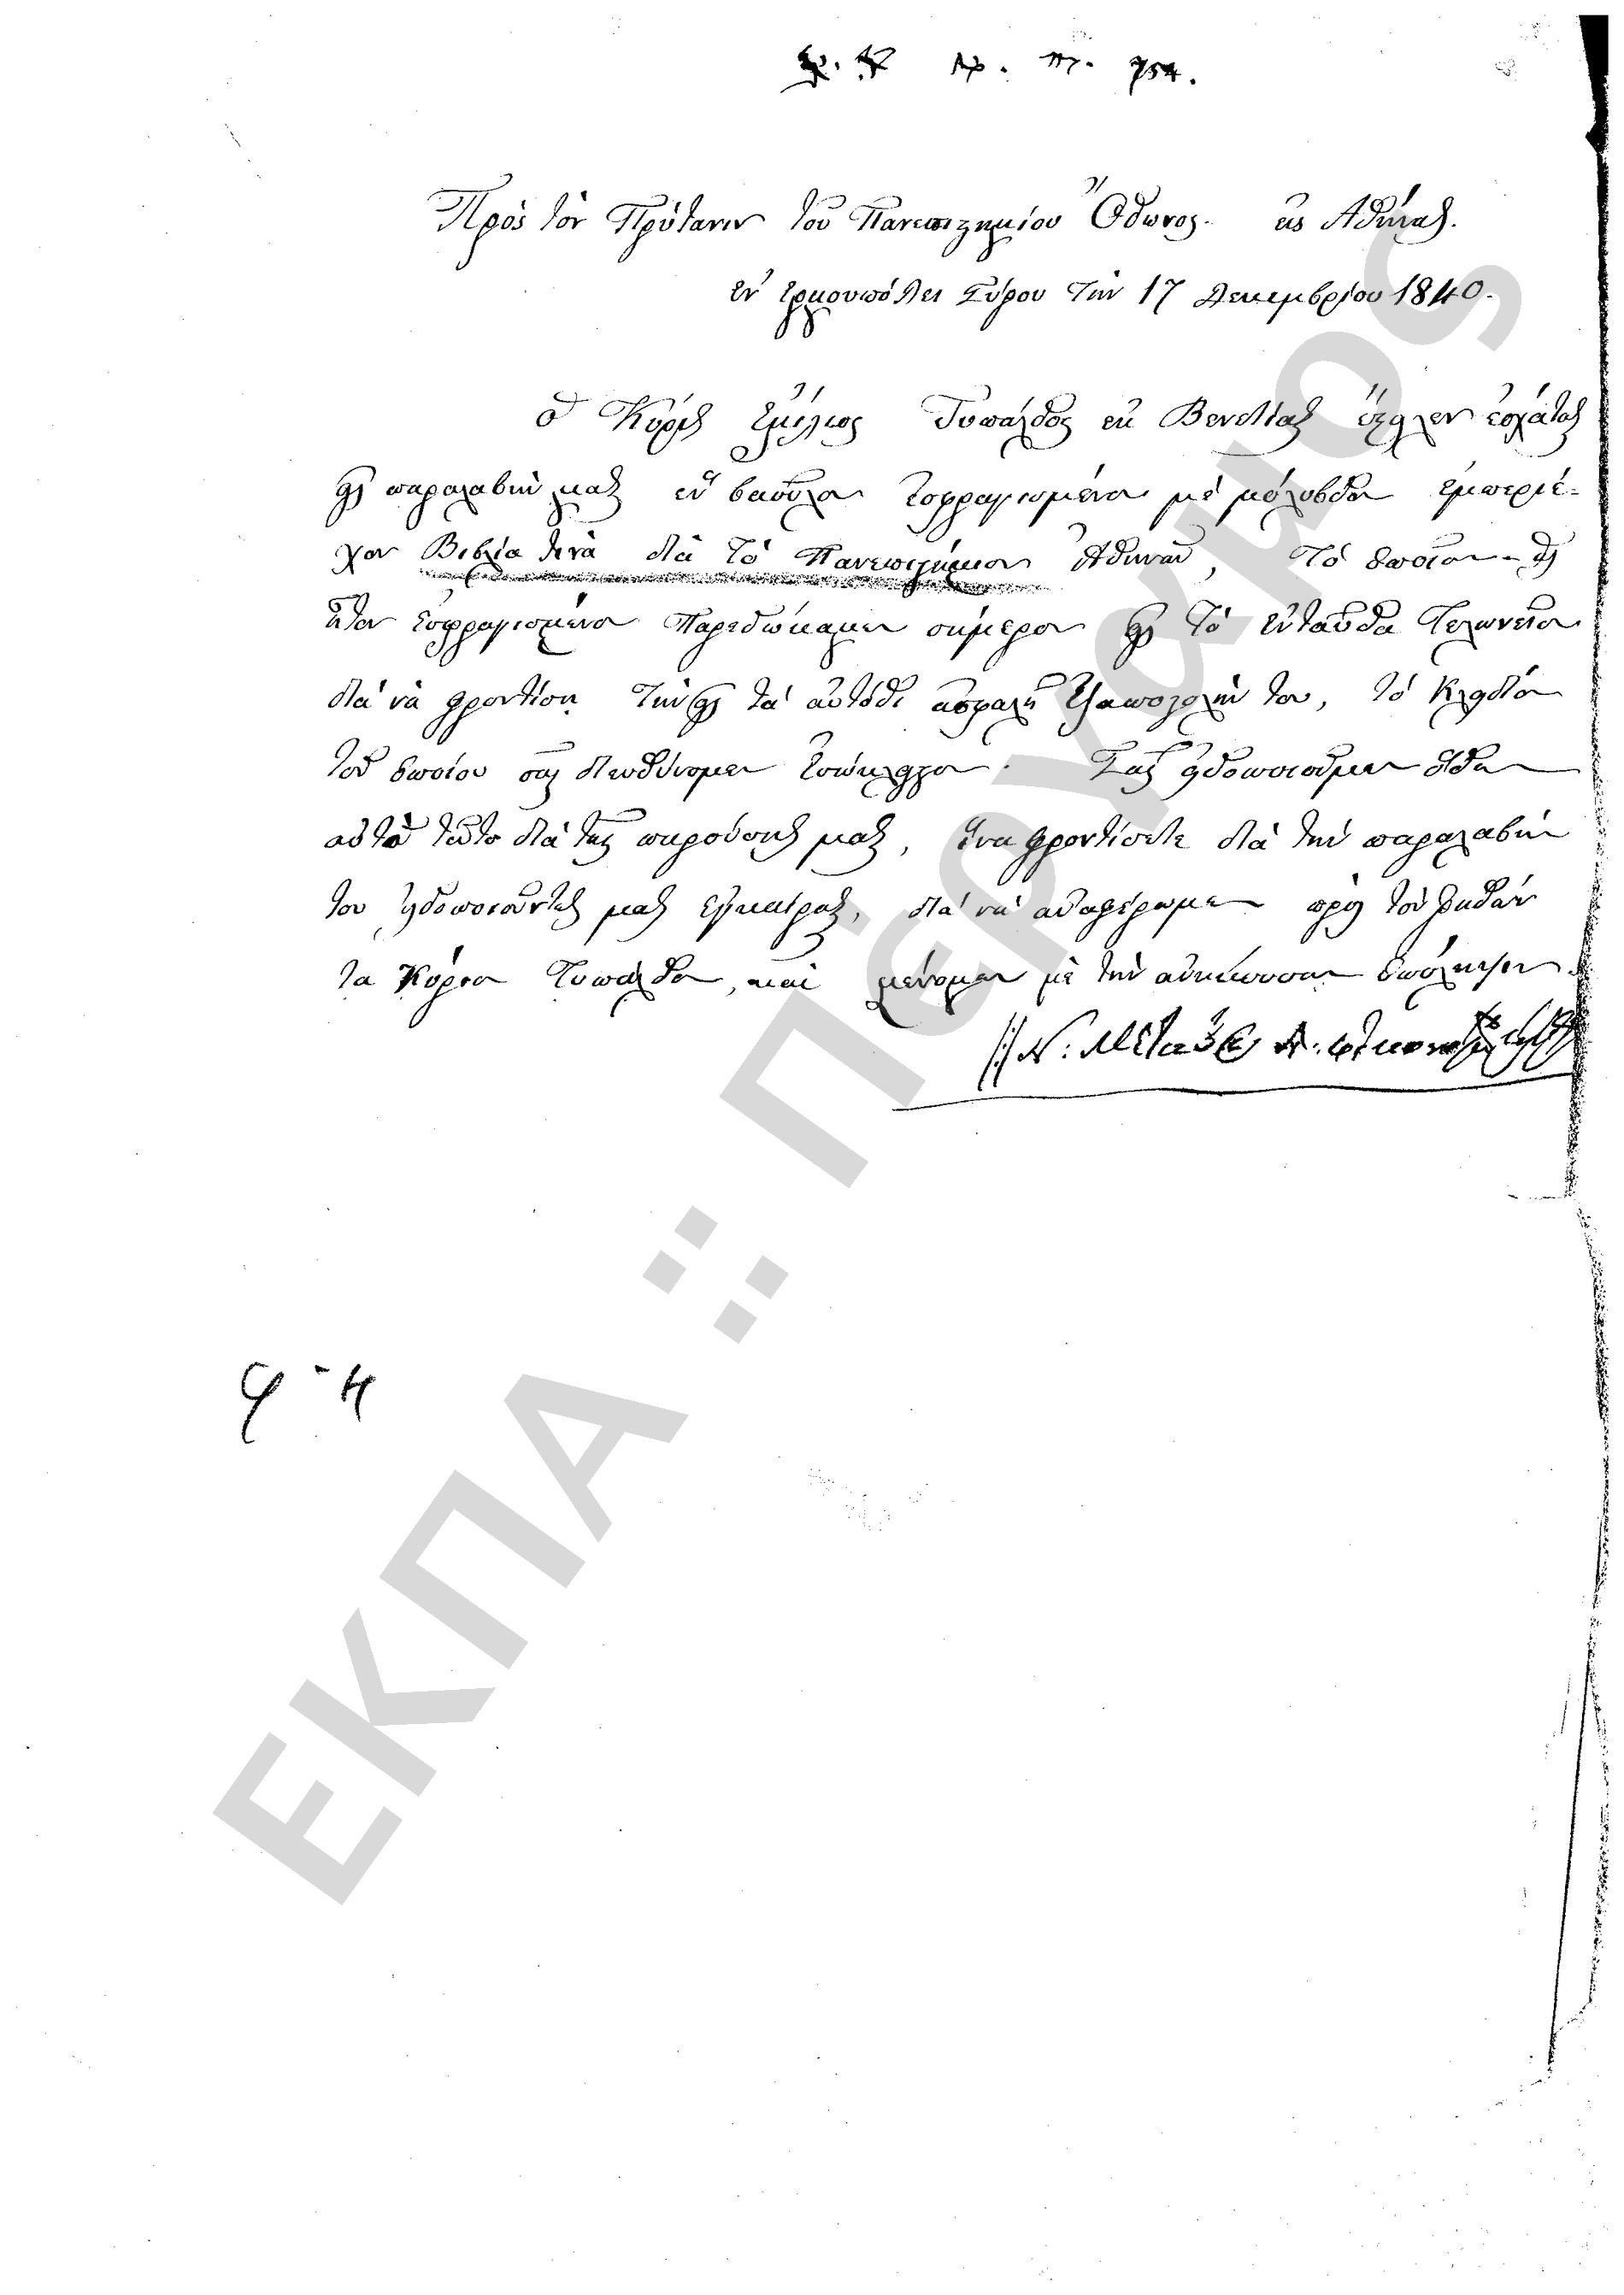 Αρ. Π. 754.
Πρὸς τὸν Πρύτανιν τοῦ Πανεπιστημίου Ὄθωνος. εἰς Ἀθήνας.
ἐν Ἑρμουπόλει Σύρου τὴν 17 Δεκεμβρίου 1840.
Ὁ Κύριος Αἰμίλιος Τυπάλδος ἐκ Βενετίας ἔστειλεν ἐσχάτως
εἰς παραλαβήν μας ἓν βαοῦλον ἐσφραγισμένον μὲ μόλυβδον ἐμπεριέ-
χον Βιβλία τινὰ διὰ τὸ Πανεπιστήμιον Ἀθηνῶν, τὸ ὁποῖον
ἐσφραγισμένον παρεδώκαμεν σήμερον εἰς τὸ ἐνταῦθα Τελωνεῖον
διὰ νὰ φροντίσῃ τὴν εἰς τὰ αὐτόθι ἀσφαλῆ ἐξαποστολήν του, τὸ κλειδίον
τοῦ ὁποίου σᾶς διευθύνομεν ἐσώκλειστον. Σᾶς εἰδοποιοῦμεν ὅθεν
αὐτὸ τοῦτο διὰ τῆς παρούσης μας, ἵνα φροντίσητε διὰ τὴν παραλαβήν
του εἰδοποιοῦντές μας ἐγκαίρως, διὰ νὰ ἀναφέρωμεν πρὸς τὸν ῥηθέν-
τα Κύριον Τυπάλδον, καὶ μένομεν μὲ τὴν ἀνήκουσαν ὑπόληψιν.